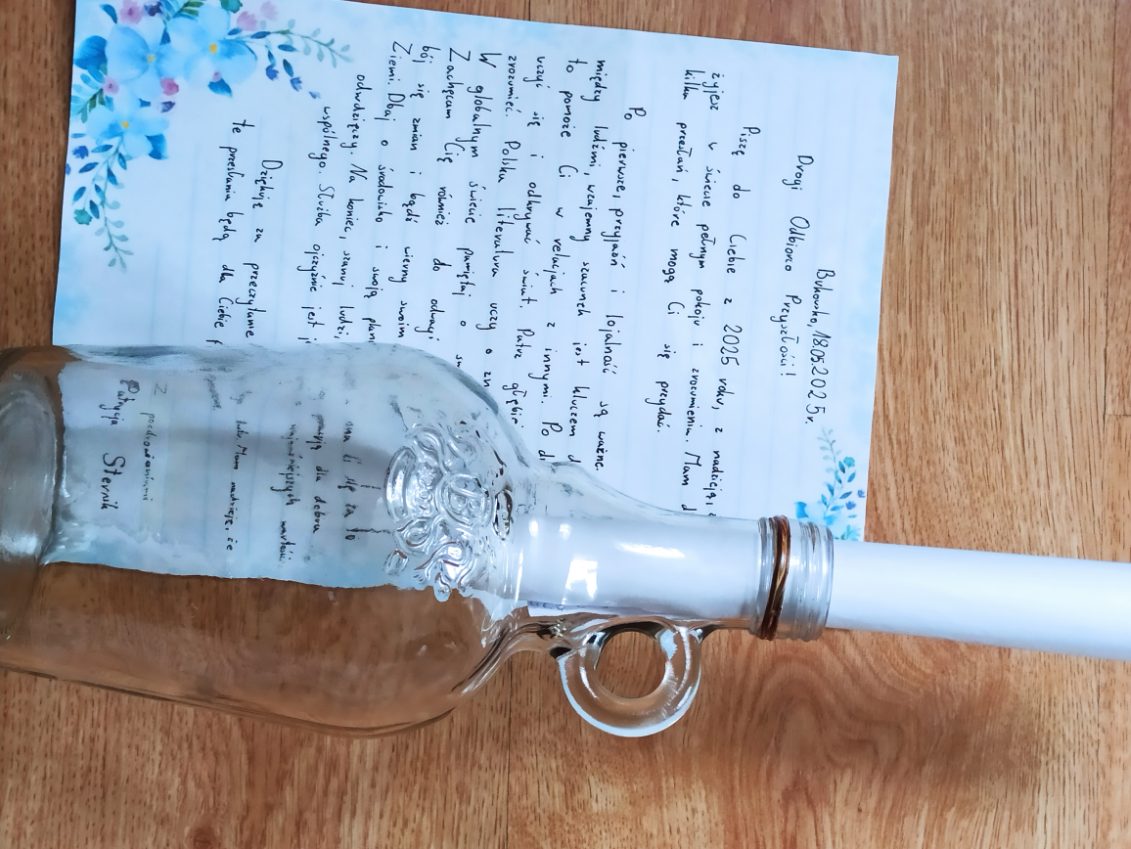 Bukowsko, 18.05.2025r.
Drogi Odbiorco Przyszłości!
Piszę do Ciebie z 2025 roku, z nadzieją,
żyjesz w świecie pełnym pokoju i zrozumienia. Mam d
kilka przesłań, które mogą Ci się przydać.
Po pierwsze, przyjaźń i lojalność są ważne.
między ludźmi, wzajemny szacunek jest kluczem d
to pomoże Ci w relacjach z innymi. Po d
uczyć się i odkrywać świat. Patrz głębie
zrozumieć. Polska literatura uczy o zn
W globalnym świecie pamiętaj o sw
Zachęcam Cię również do odwagi
bój się zmian i bądź wierny swoim
Ziemi. Dbaj o środowisko i swoją plan
odwdzięczy. Na koniec, szanuj ludzi, Ci się za to
wspólnego. Służba ojczyźnie jest j dla dobra
najważniejszych wartości.
Dziękuję za przeczytanie Mam nadzieję, że
te przesłania będą dla Ciebie
Z pozdrowieniami
Patrycja Sternik